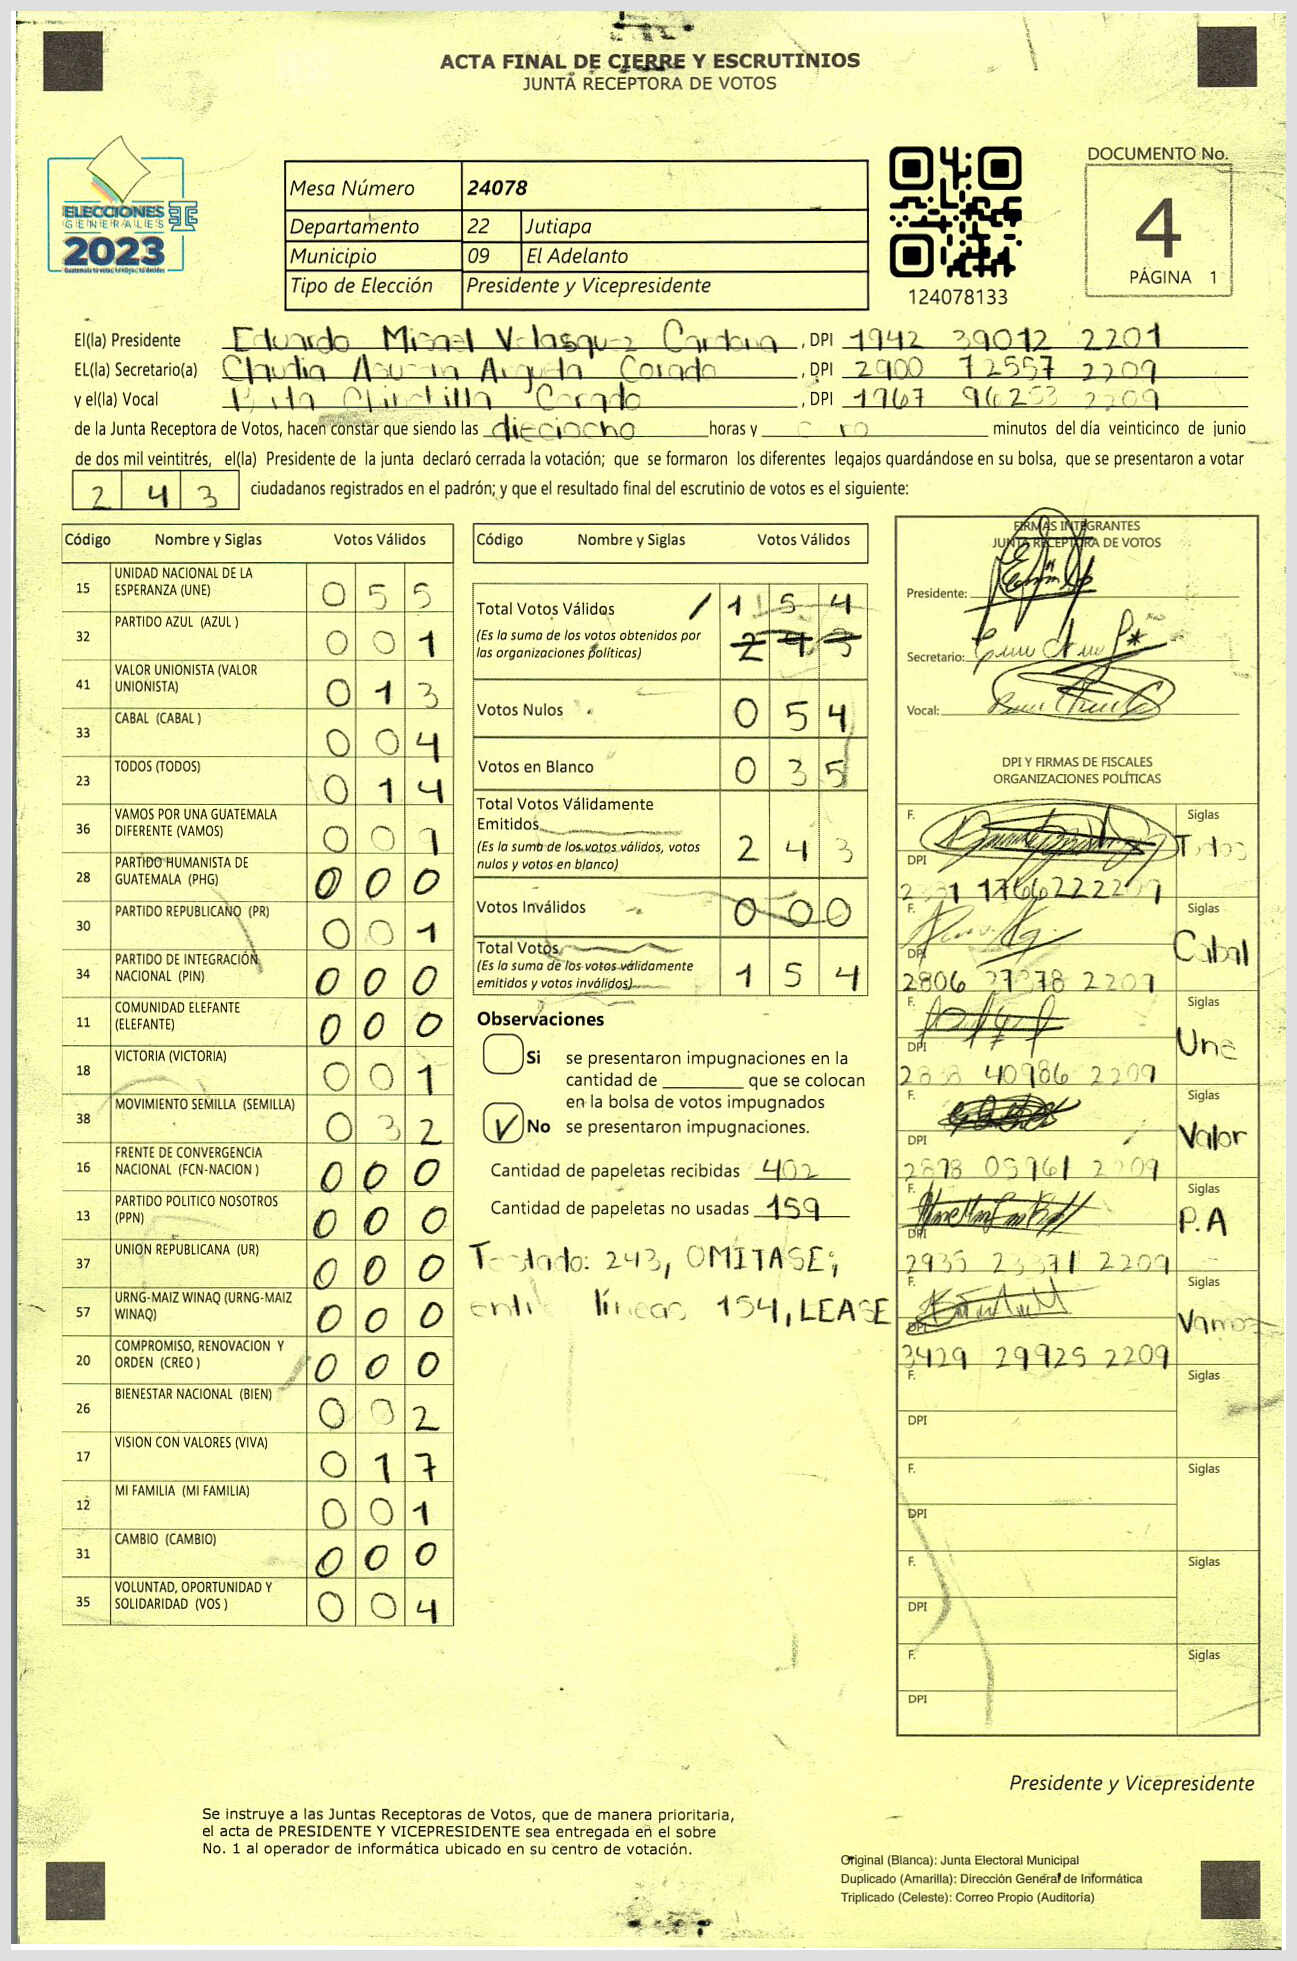 ACTA FINAL DE CIERRE Y ESCRUTINIOS
JUNTA RECEPTORA DE VOTOS
ELECCIONES
GENERALES
2023
Mesa Número 24078
Departamento 22 Jutiapa
Municipio 09 El Adelanto
Tipo de Elección Presidente y Vicepresidente
124078133
DOCUMENTO No.
4
PÁGINA 1
El(la) Presidente Eduardo Miguel Velasquez Cardona , DPI 1942 39012 2201
EL(la) Secretario(a) Claudia Argueta Corado , DPI 2900 72557 2209
y el(la) Vocal Chinchilla Corado , DPI 1967 96253 2209
de la Junta Receptora de Votos, hacen constar que siendo las dieciocho horas y cero minutos del día veinticinco de junio
de dos mil veintitrés, el(la) Presidente de la junta declaró cerrada la votación; que se formaron los diferentes legajos guardándose en su bolsa, que se presentaron a votar
2 4 3 ciudadanos registrados en el padrón; y que el resultado final del escrutinio de votos es el siguiente:
Código Nombre y Siglas Votos Válidos
15 UNIDAD NACIONAL DE LA ESPERANZA (UNE) 0 5 5
32 PARTIDO AZUL (AZUL ) 0 0 1
41 VALOR UNIONISTA (VALOR UNIONISTA) 0 1 3
33 CABAL (CABAL ) 0 0 4
23 TODOS (TODOS) 0 1 4
36 VAMOS POR UNA GUATEMALA DIFERENTE (VAMOS) 0 0
28 PARTIDO HUMANISTA DE GUATEMALA (PHG) 0 0 0
30 PARTIDO REPUBLICANO (PR) 0 0 1
34 PARTIDO DE INTEGRACIÓN NACIONAL (PIN) 0 0 0
11 COMUNIDAD ELEFANTE (ELEFANTE) 0 0 0
18 VICTORIA (VICTORIA) 0 0 1
38 MOVIMIENTO SEMILLA (SEMILLA) 0 3 2
16 FRENTE DE CONVERGENCIA NACIONAL (FCN-NACION ) 0 0 0
13 PARTIDO POLITICO NOSOTROS (PPN) 0 0 0
37 UNION REPUBLICANA (UR) 0 0 0
57 URNG-MAIZ WINAQ (URNG-MAIZ WINAQ) 0 0 0
20 COMPROMISO, RENOVACION Y ORDEN (CREO ) 0 0 0
26 BIENESTAR NACIONAL (BIEN) 0 0 2
17 VISION CON VALORES (VIVA) 0 1 7
12 MI FAMILIA (MI FAMILIA) 0 0 1
31 CAMBIO (CAMBIO) 0 0 0
35 VOLUNTAD, OPORTUNIDAD Y SOLIDARIDAD (VOS ) 0 0 4
Código Nombre y Siglas Votos Válidos
Total Votos Válidos / 1 5 4
(Es la suma de los votos obtenidos por las organizaciones políticas) 2 4 3
Votos Nulos 0 5 4
Votos en Blanco 0 3 5
Total Votos Válidamente Emitidos
(Es la suma de los votos válidos, votos nulos y votos en blanco) 2 4 3
Votos Inválidos 0 0 0
Total Votos
(Es la suma de los votos válidamente emitidos y votos inválidos) 1 5 4
Observaciones
Si se presentaron impugnaciones en la
cantidad de ________ que se colocan
en la bolsa de votos impugnados
No se presentaron impugnaciones.
Cantidad de papeletas recibidas 402
Cantidad de papeletas no usadas 159
Testado: 243, OMITASE;
entre líneas 154, LEASE
FIRMAS INTEGRANTES
JUNTA RECEPTORA DE VOTOS
Presidente:
Secretario:
Vocal:
DPI Y FIRMAS DE FISCALES
ORGANIZACIONES POLÍTICAS
F. Siglas
DPI Todos
F. Siglas
DPI Cabal
2806 2209
F. Siglas
DPI Une
40986 2209
F. Siglas
DPI Valor
2209
F. Siglas
DPI P.A
2935 2209
F. Siglas
DPI Vamos
3429 29925 2209
F. Siglas
DPI
F. Siglas
DPI
F. Siglas
DPI
F. Siglas
DPI
Presidente y Vicepresidente
Se instruye a las Juntas Receptoras de Votos, que de manera prioritaria,
el acta de PRESIDENTE Y VICEPRESIDENTE sea entregada en el sobre
No. 1 al operador de informática ubicado en su centro de votación.
Original (Blanca): Junta Electoral Municipal
Duplicado (Amarilla): Dirección General de Informática
Triplicado (Celeste): Correo Propio (Auditoría)